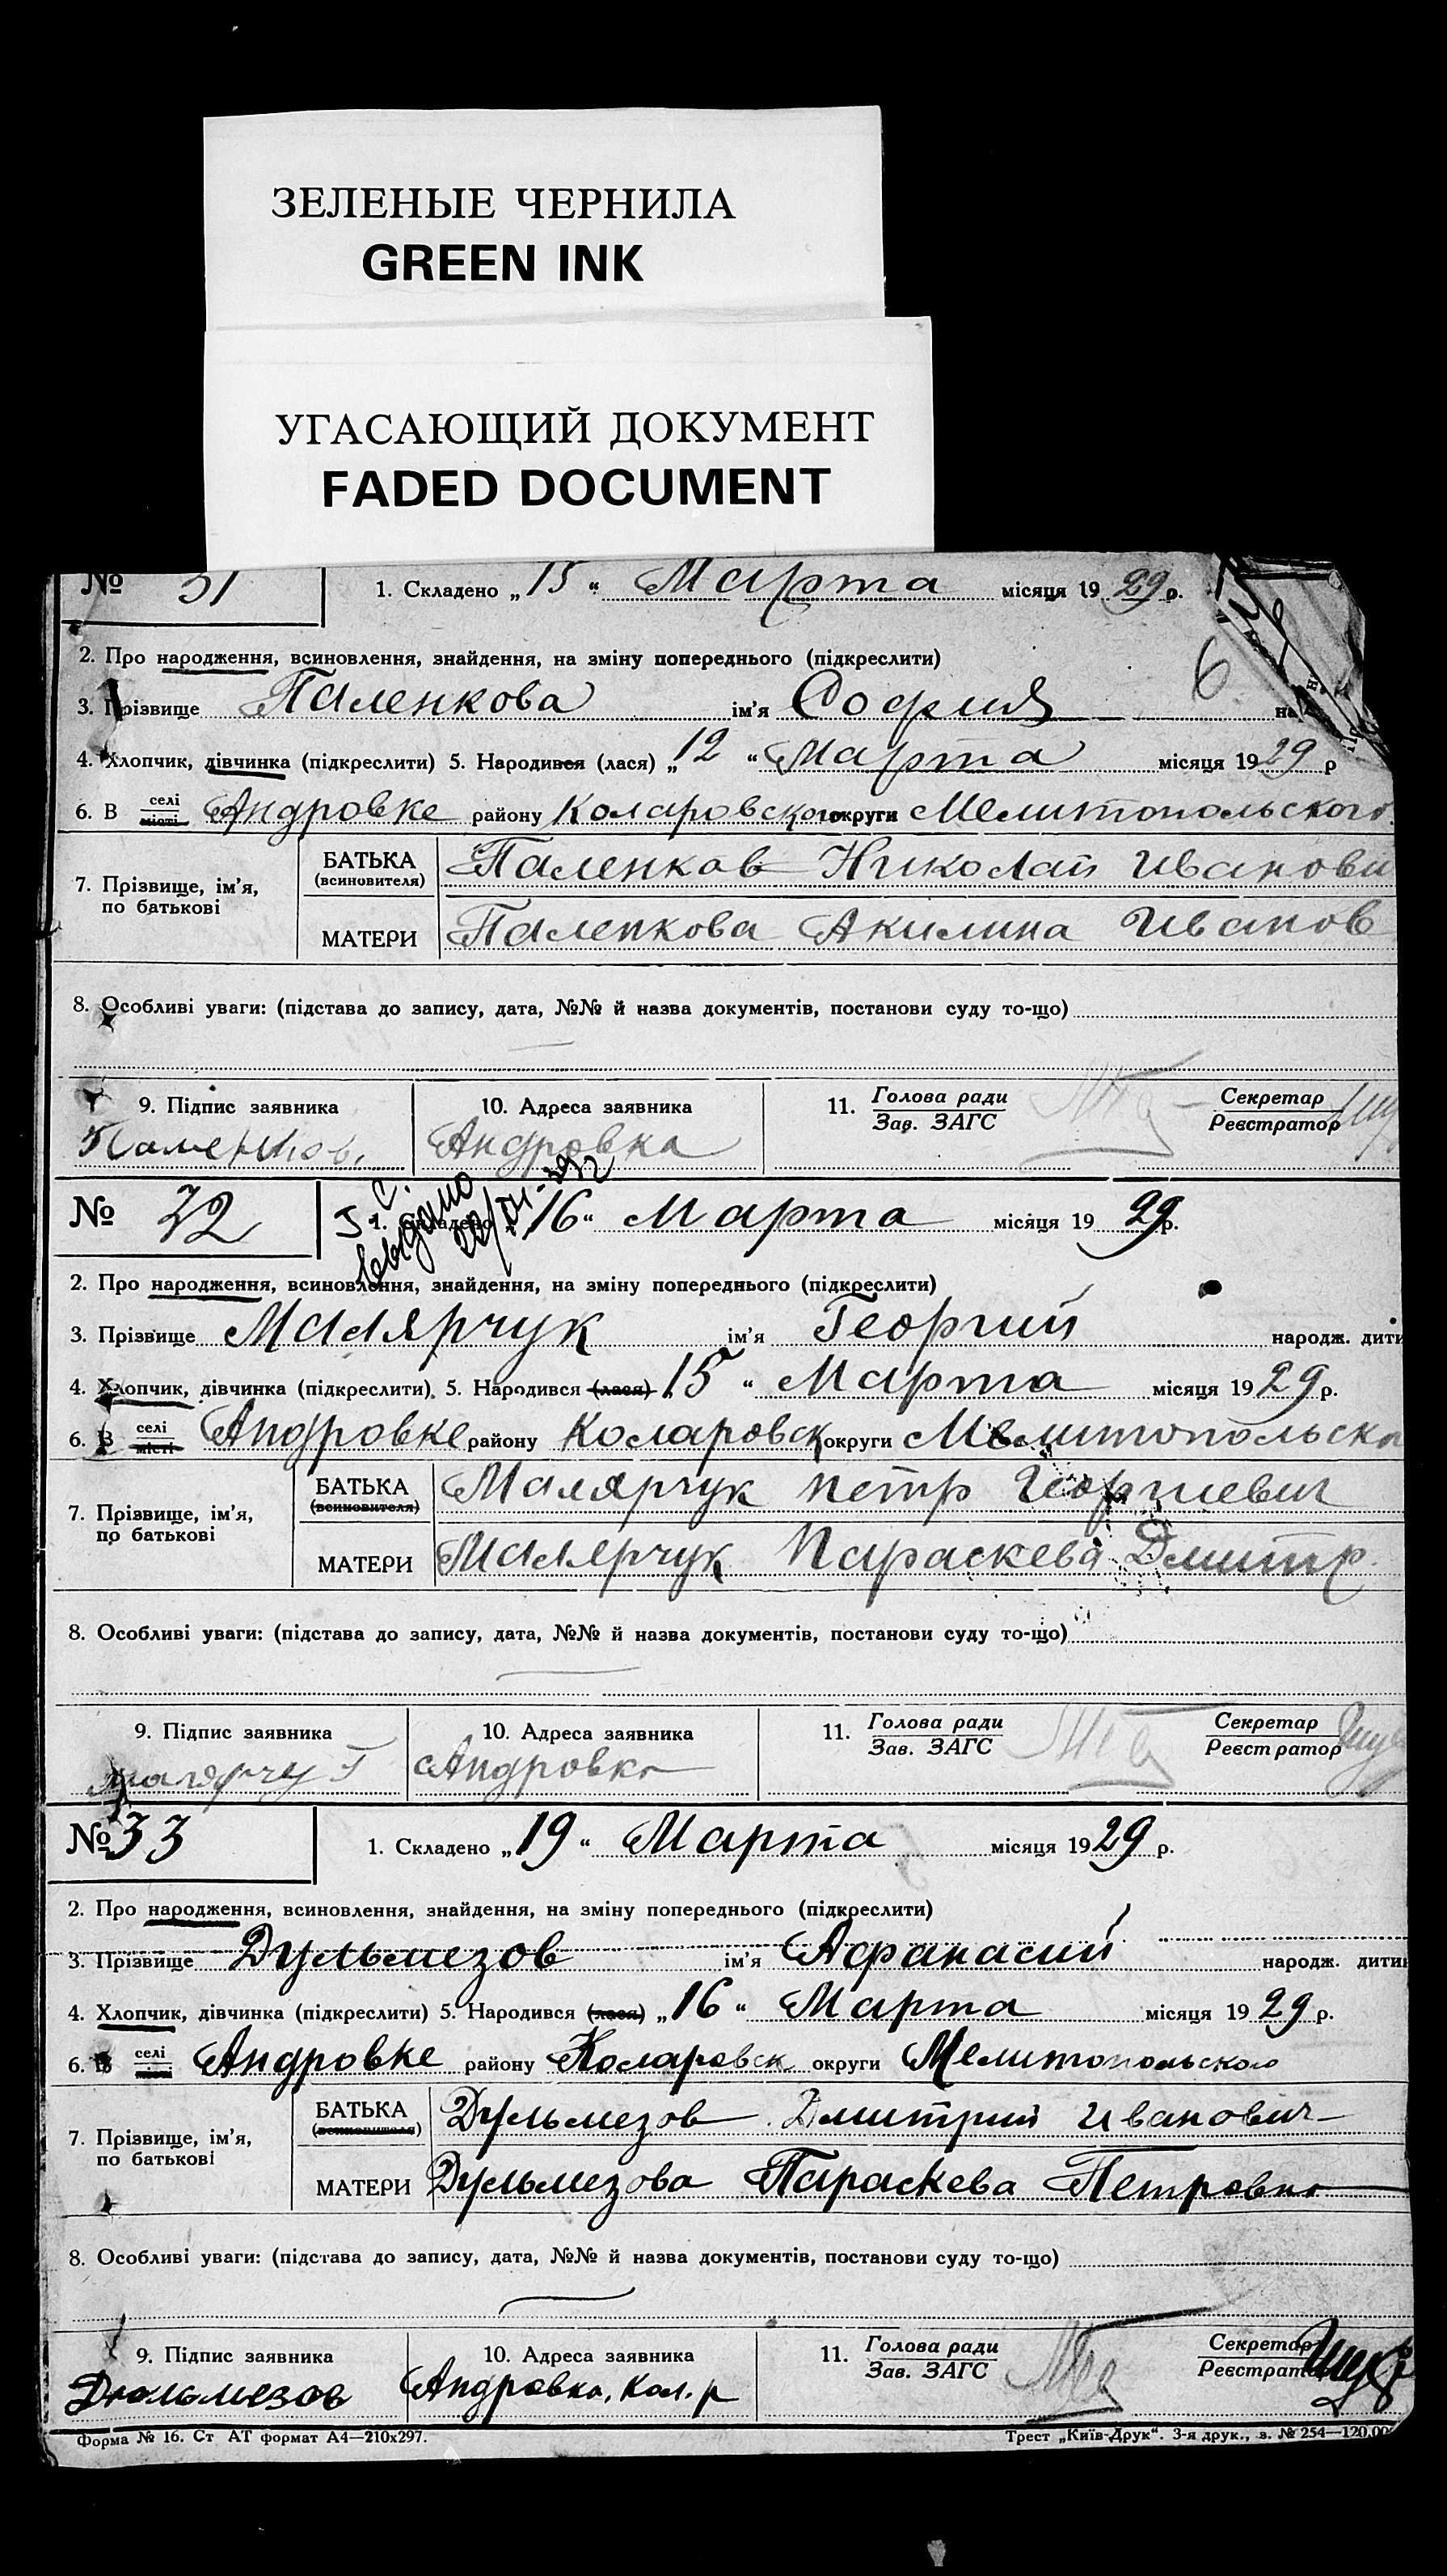 ЗЕЛЕНЫЕ ЧЕРНИЛА
GREEN INK
УГАСАЮЩИЙ ДОКУМЕНТ
FADED DOCUMENT
№ 31 1. Складено „ 15 “ Марта місяця 1929 р.
2. Про народження, всиновлення, знайдення, на зміну попереднього (підкреслити)
6
3. Прізвище Паленкова ім’я София на
4. Хлопчик, дівчинка (підкреслити) 5. Народився (лася) „ 12 “ Марта місяця 1929 р
6. В селі місті Андровке району Коларовского округи Мелитопольского
7. Прізвище, ім’я, по батькові БАТЬКА (всиновителя) Паленков Николай Иванови
МАТЕРИ Паленкова Акилина Иванов
8. Особливі уваги: (підстава до запису, дата, №№ й назва документів, постанови суду то-що)
9. Підпис заявника 10. Адреса заявника 11. Голова ради Зав. ЗАГС Секретар Реєстратор
Паленков. Андровка
№ 32 1. Складено „ 16 “ Марта місяця 1929 р.
2. Про народження, всиновлення, знайдення, на зміну попереднього (підкреслити)
3. Прізвище Малярчук ім’я Георгий народж. дити
4. Хлопчик, дівчинка (підкреслити). 5. Народився (лася) 15 “ Марта місяця 1929 р.
6. В селі місті Андровке району Коларовск округи Мелитопольско
7. Прізвище, ім’я, по батькові БАТЬКА (всиновителя) Малярчук Петр Георгиевич
МАТЕРИ Малярчук Параскева Дмитр.
8. Особливі уваги: (підстава до запису, дата, №№ й назва документів, постанови суду то-що)
9. Підпис заявника 10. Адреса заявника 11. Голова ради Зав. ЗАГС Секретар Реєстратор
Андровка
№ 33 1. Складено „ 19 “ Марта місяця 1929 р.
2. Про народження, всиновлення, знайдення, на зміну попереднього (підкреслити)
3. Прізвище Дульмезов ім’я Афанасий народж. дитин
4. Хлопчик, дівчинка (підкреслити) 5. Народився (лася) „ 16 “ Марта місяця 1929 р.
6. В селі Андровке району Коларовск округи Мелитопольского
7. Прізвище, ім’я, по батькові БАТЬКА (всиновителя) Дульмезов Дмитрий Иванович
МАТЕРИ Дульмезова Параскева Петровна
8. Особливі уваги: (підстава до запису, дата, №№ й назва документів, постанови суду то-що)
9. Підпис заявника 10. Адреса заявника 11. Голова ради Зав. ЗАГС Секретар Реєстратор
Дюльмезов Андровка, Кол. р
Форма № 16. Ст АТ формат А4—210x297. Трест „Київ-Друк“. 3-я друк., з. № 254—120.00